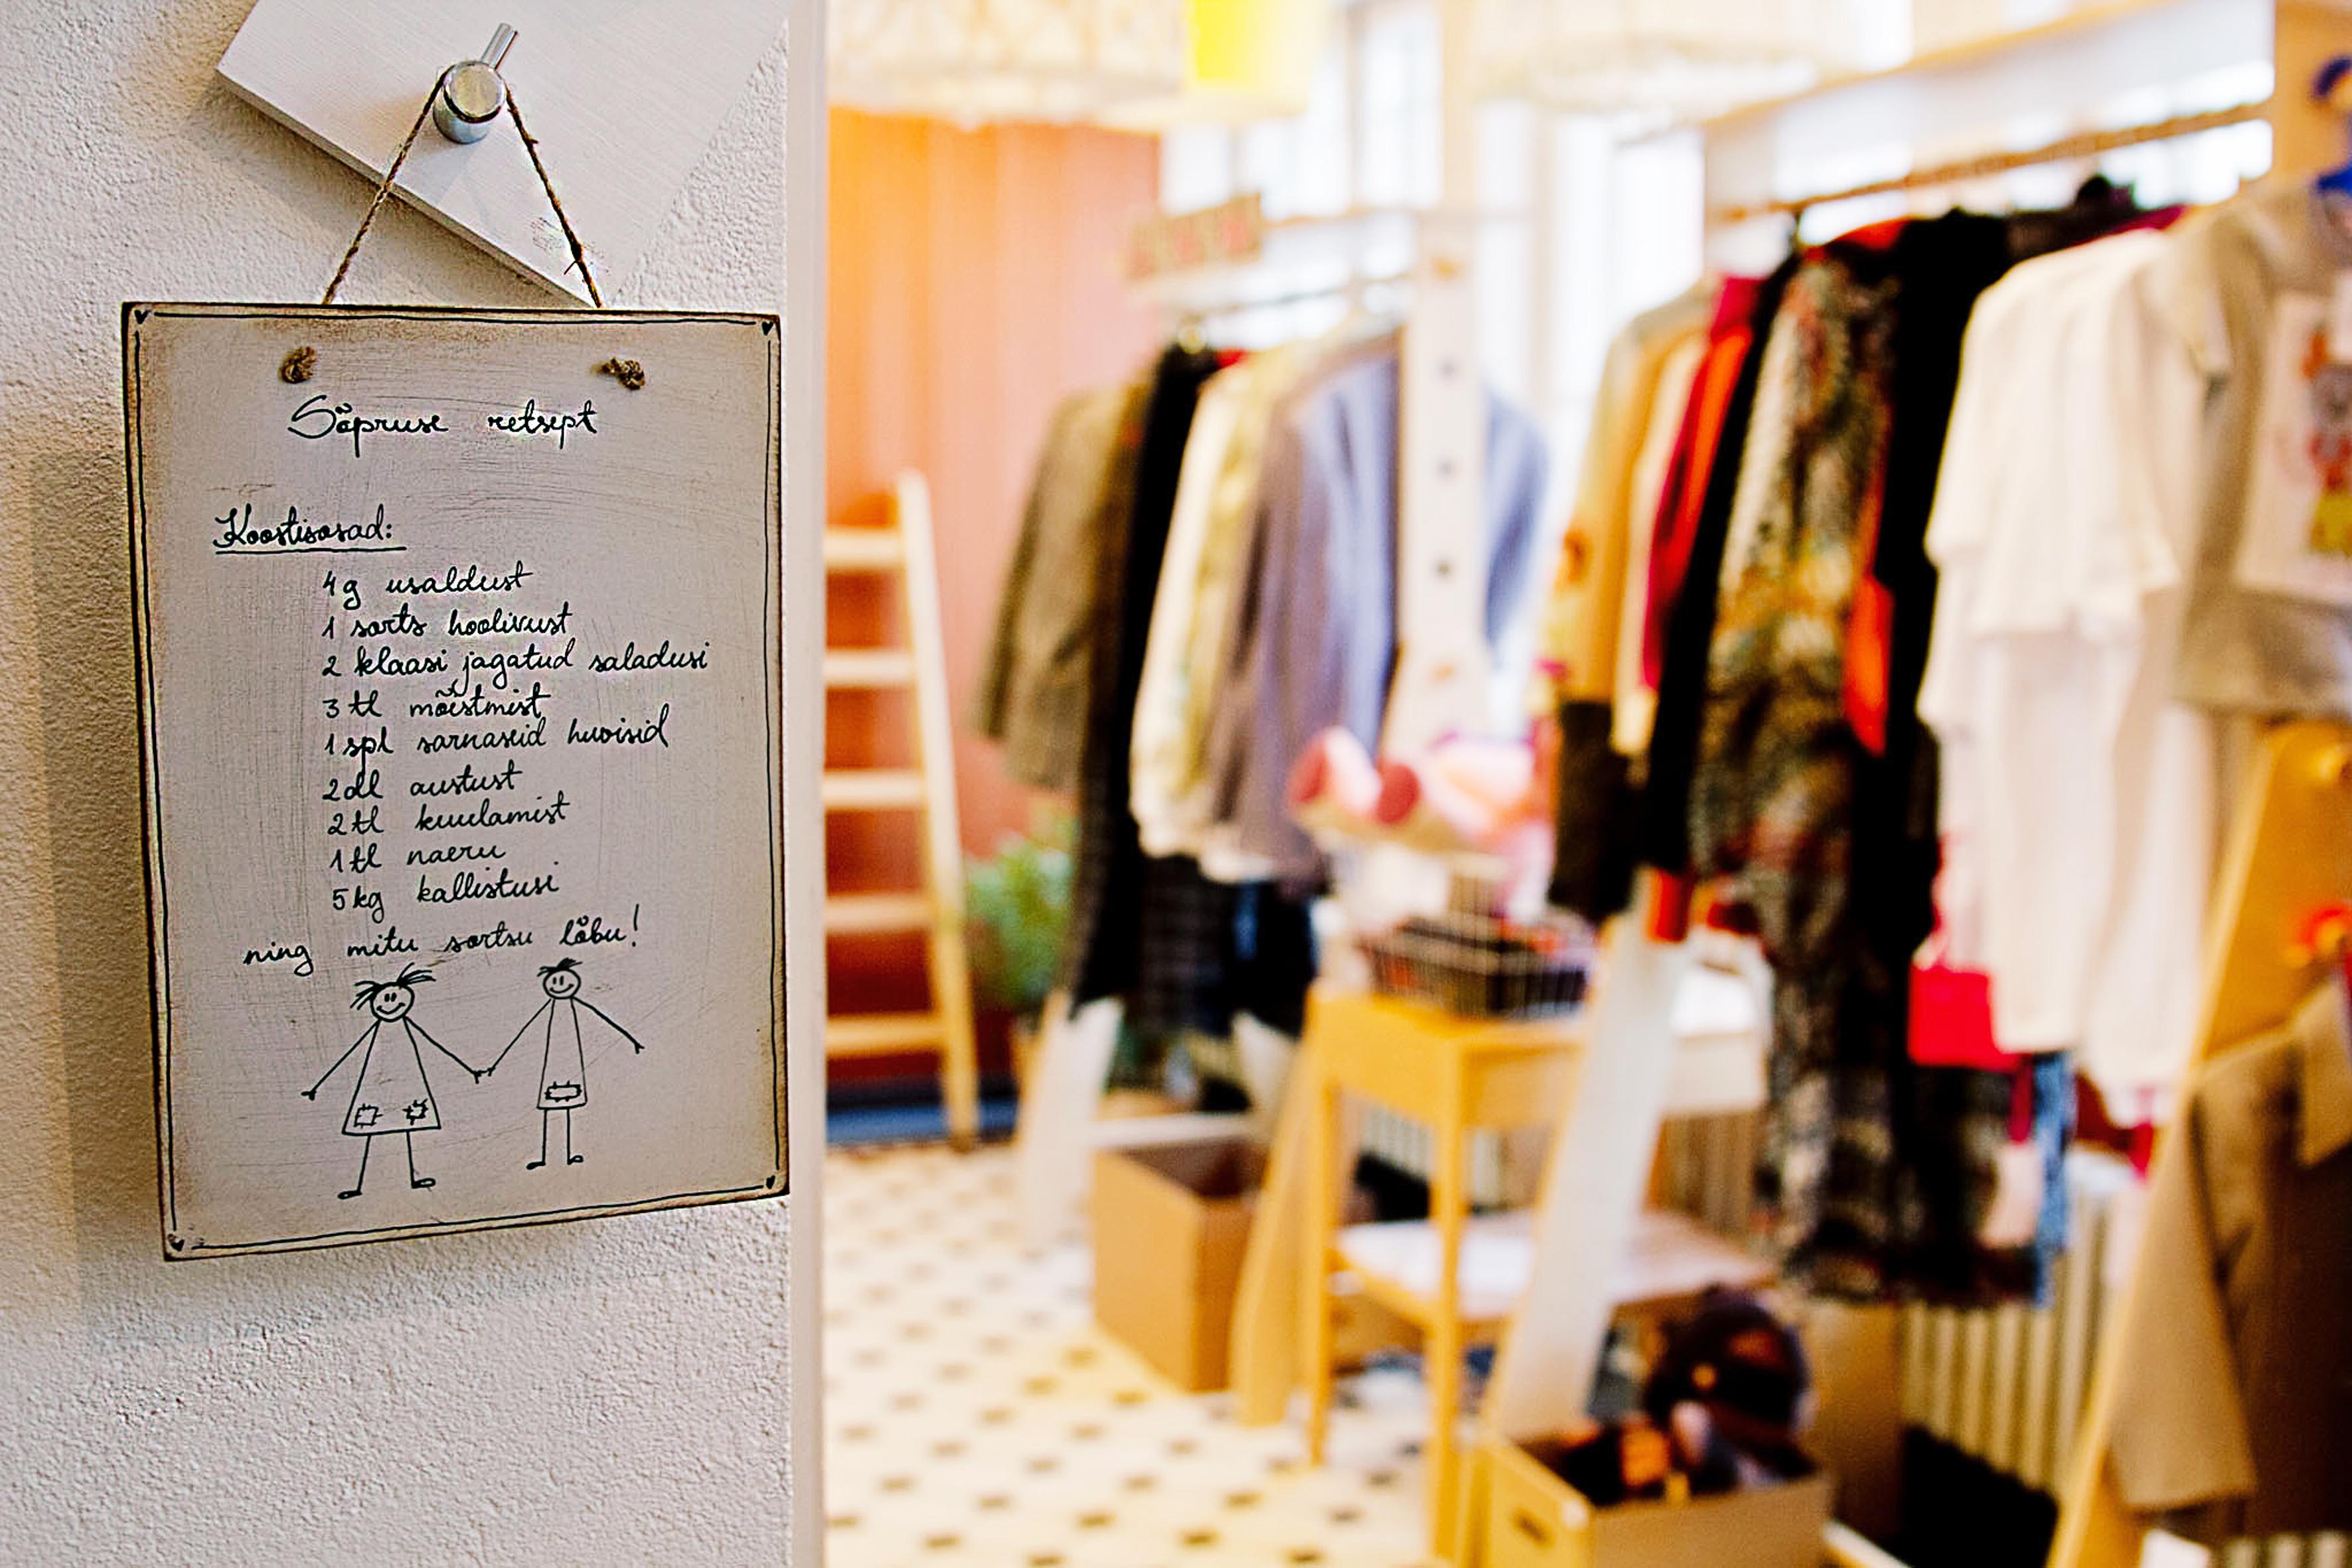 Sõpruse retsept
Koostisosad:
4g usaldust
1 sorts hoolivust
2 klaasi jagatud saladusi
3 tl mõistmist
1 spl sarnaseid huvisid
2 dl austust
2 tl kuulamist
1 tl naeru
5 kg kallistusi
ning mitu sortsu lõbu!